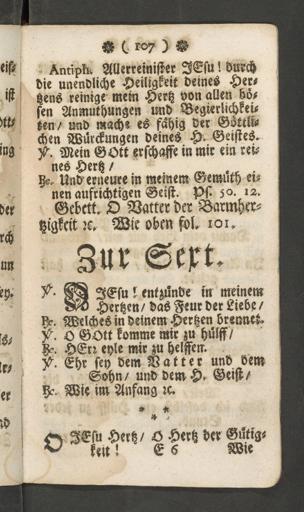 ( 107 )
Antiph. Allerreinister JEsu! durch
die unendliche Heiligkeit deines Her-
tzens reinige mein Hertz von allen bö-
sen Anmuthungen und Begierlichkei-
ten/ und machs es fähig der Göttli-
chen Würckungen deines H. Geistes.
℣. Mein GOtt erschaffe in mir ein rei-
nes Hertz/
℟. Und erneure in meinem Gemüth ei-
nen aufrichtigen Geist. Ps. 50. 12.
Gebett. O Vatter der Barmher-
tzigkeit ꝛc. Wie oben fol. 101.
Zur Sext.
℣. O JEsu! entzünde in meinem
Hertzen/ das Feur der Liebe/
℟. Welches in deinem Hertzen brennet.
℣. O GOtt komme mir zu hülff/
℟. HErr eyle mir zu helffen.
℣. Ehr sey dem Vatter und dem
Sohn/ und dem H. Geist/
℟. Wie im Anfang ꝛc.
* * *
O JEsu Hertz/ O Hertz der Gütig-
keit! E 6 Wie